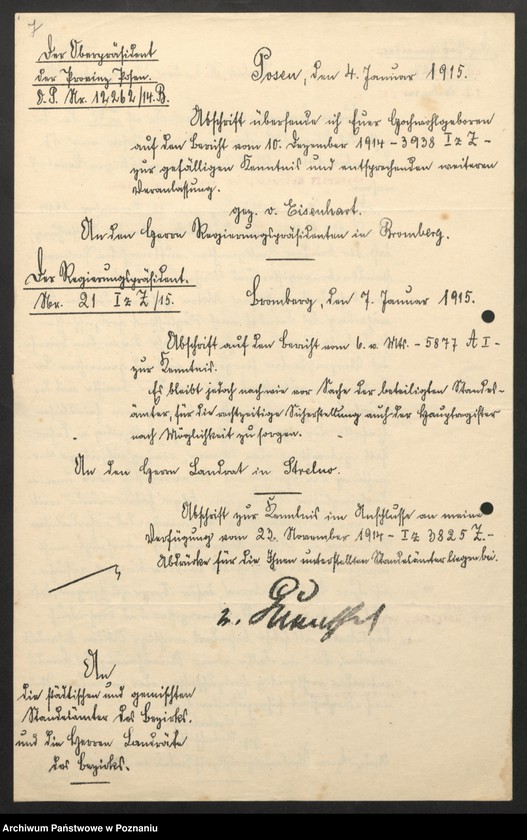 7
Der Oberpräsident
der Provinz Posen.
O.P. Nr. 12262/14.B.
Posen, den 4. Januar 1915.
Abschrift übersende ich Euer Hochwohlgeboren
auf den Bericht vom 10. Dezember 1914 - 3938 I z Z -
zur gefälligen Kenntnis und entsprechenden weiteren
Veranlassung.
gez. v. Eisenhart.
An den Herrn Regierungspräsidenten in Bromberg.
Der Regierungspräsident.
Nr. 21 I z Z /15.
Bromberg, den 7. Januar 1915.
Abschrift auf den Bericht vom 6. v. Mts. - 5877 A I -
zur Kenntnis.
Es bleibt jedoch nach wie vor Sache der beteiligten Standes-
ämter, für die rechtzeitige Sicherstellung auch der Hauptregister
nach Möglichkeit zu sorgen.
An den Herrn Landrat in Strelno.
Abschrift zur Kenntnis im Anschlusse an meine
Verfügung vom 23. November 1914 - I z 3825 Z. -
Abdrücke für die Ihnen unterstellten Standesämter liegen bei.
An
die städtischen und gemischten
Standesämter des Bezirks.
und die Herren Landräte
des Bezirks.
Archiwum Państwowe w Poznaniu